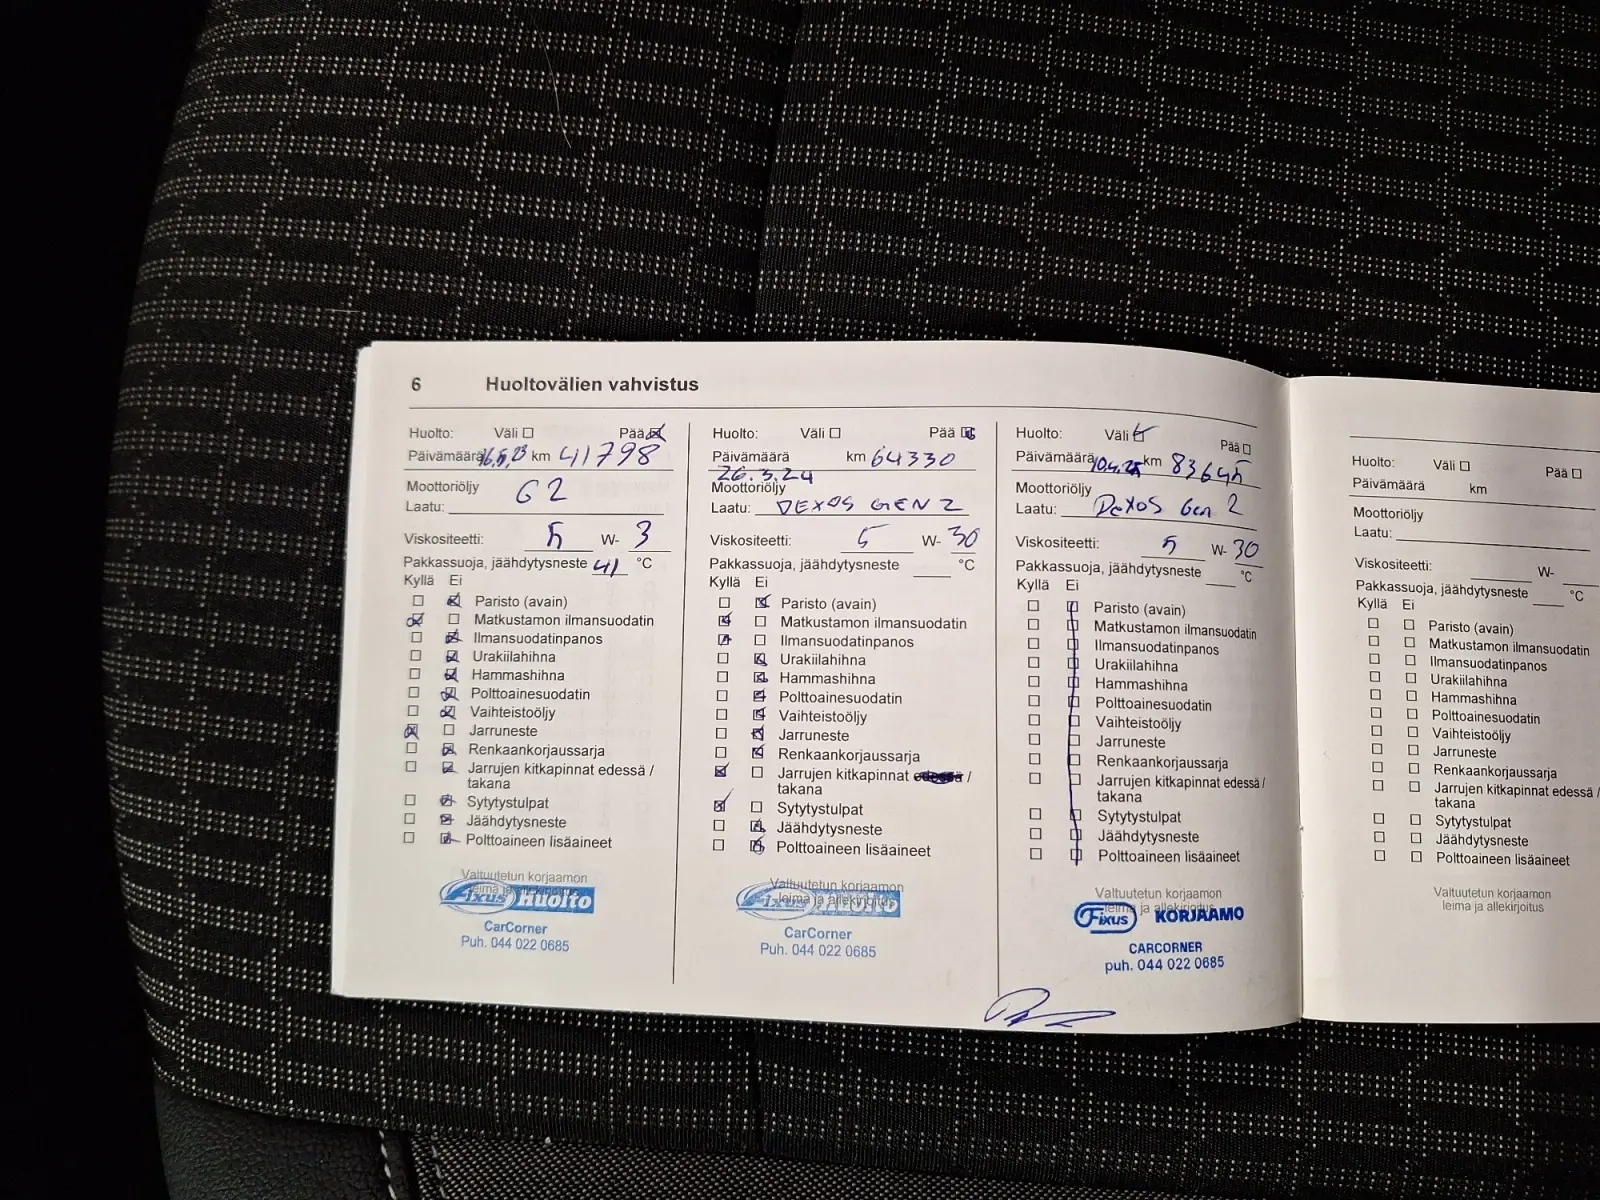 6 Huoltovälien vahvistus
Huolto: Väli Pää
Päivämäärä 16.5.23 km 41798
Moottoriöljy
Laatu: G2
Viskositeetti: 5 W- 3
Pakkassuoja, jäähdytysneste 41 °C
Kyllä Ei
Paristo (avain)
Matkustamon ilmansuodatin
Ilmansuodatinpanos
Urakiilahihna
Hammashihna
Polttoainesuodatin
Vaihteistoöljy
Jarruneste
Renkaankorjaussarja
Jarrujen kitkapinnat edessä /
takana
Sytytystulpat
Jäähdytysneste
Polttoaineen lisäaineet
Valtuutetun korjaamon
leima ja allekirjoitus
Fixus Huolto
CarCorner
Puh. 044 022 0685
Huolto: Väli Pää
Päivämäärä km 64330
26.3.24
Moottoriöljy
Laatu: DEXOS GEN 2
Viskositeetti: 5 W- 30
Pakkassuoja, jäähdytysneste °C
Kyllä Ei
Paristo (avain)
Matkustamon ilmansuodatin
Ilmansuodatinpanos
Urakiilahihna
Hammashihna
Polttoainesuodatin
Vaihteistoöljy
Jarruneste
Renkaankorjaussarja
Jarrujen kitkapinnat edessä /
takana
Sytytystulpat
Jäähdytysneste
Polttoaineen lisäaineet
Valtuutetun korjaamon
leima ja allekirjoitus
Fixus Huolto
CarCorner
Puh. 044 022 0685
Huolto: Väli Pää
Päivämäärä 10.4.25 km 83645
Moottoriöljy
Laatu: Dexos Gen 2
Viskositeetti: 5 W- 30
Pakkassuoja, jäähdytysneste °C
Kyllä Ei
Paristo (avain)
Matkustamon ilmansuodatin
Ilmansuodatinpanos
Urakiilahihna
Hammashihna
Polttoainesuodatin
Vaihteistoöljy
Jarruneste
Renkaankorjaussarja
Jarrujen kitkapinnat edessä /
takana
Sytytystulpat
Jäähdytysneste
Polttoaineen lisäaineet
Valtuutetun korjaamon
leima ja allekirjoitus
Fixus KORJAAMO
CARCORNER
puh. 044 022 0685
Huolto: Väli Pää
Päivämäärä km
Moottoriöljy
Laatu:
Viskositeetti: W-
Pakkassuoja, jäähdytysneste °C
Kyllä Ei
Paristo (avain)
Matkustamon ilmansuodatin
Ilmansuodatinpanos
Urakiilahihna
Hammashihna
Polttoainesuodatin
Vaihteistoöljy
Jarruneste
Renkaankorjaussarja
Jarrujen kitkapinnat edessä /
takana
Sytytystulpat
Jäähdytysneste
Polttoaineen lisäaineet
Valtuutetun korjaamon
leima ja allekirjoitus